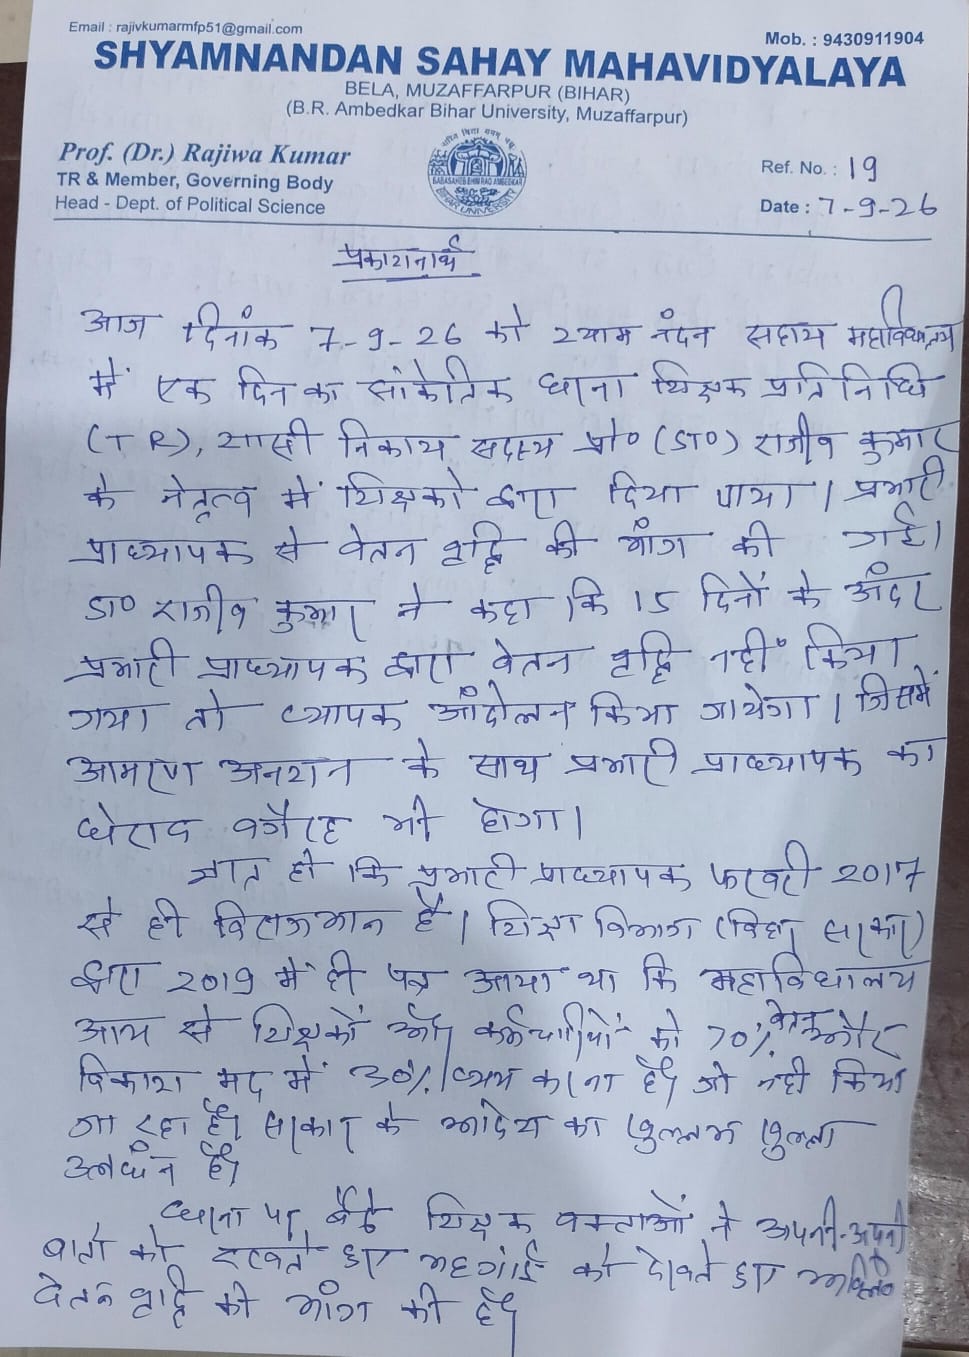 Email : rajivkumarmfp51@gmail.com
Mob. : 9430911904
SHYAMNANDAN SAHAY MAHAVIDYALAYA
BELA, MUZAFFARPUR (BIHAR)
(B.R. Ambedkar Bihar University, Muzaffarpur)
Prof. (Dr.) Rajiwa Kumar
TR & Member, Governing Body
Head - Dept. of Political Science
Ref. No. : 19
Date : 7-9-26
प्रकाशनार्थ
आज दिनांक 7-9-26 को श्याम नंदन सहाय महाविद्यालय
में एक दिन का सांकेतिक धरना शिक्षक प्रतिनिधि
(TR), शासी निकाय सदस्य प्रो० (डा०) राजीव कुमार
के नेतृत्व में शिक्षको द्वारा दिया गया। प्रभारी
प्राध्यापक से वेतन वृद्धि की मांग की गई।
डा० राजीव कुमार ने कहा कि 15 दिनों के अंदर
प्रभारी प्राध्यापक द्वारा वेतन वृद्धि नहीं किया
गया तो व्यापक आंदोलन किया जायेगा। जिसमें
आमरण अनशन के साथ प्रभारी प्राध्यापक का
घेराव वगैरह भी होगा।
ज्ञात हो कि प्रभारी प्राध्यापक फरवरी 2017
से ही विराजमान है। शिक्षा विभाग (बिहार सरकार)
द्वारा 2019 में ही पत्र आया था कि महाविद्यालय
आय से शिक्षकों और कर्मचारियों को 70% वेतन और
विकास मद में 30% व्यय करना है। जो नही किया
जा रहा है। सरकार के आदेश का खुल्लम खुल्ला
उलंघन है।
धरना पर बैठे शिक्षक वक्ताओं ने अपनी-अपनी
बातो को रखते हुए महगांई को देखते हुए
वेतन वृद्धि की मांग की है।